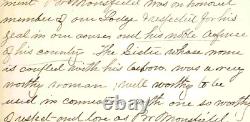 ment Br Monsfield was an honored
member of our Lodge respected for his
zeal in our cause and his noble defence
of his country. The Sister whose name
is coupled with his was a very
worthy woman, well worthy to be
used in connection with one so worthy
of respect and love as Br Monsfield